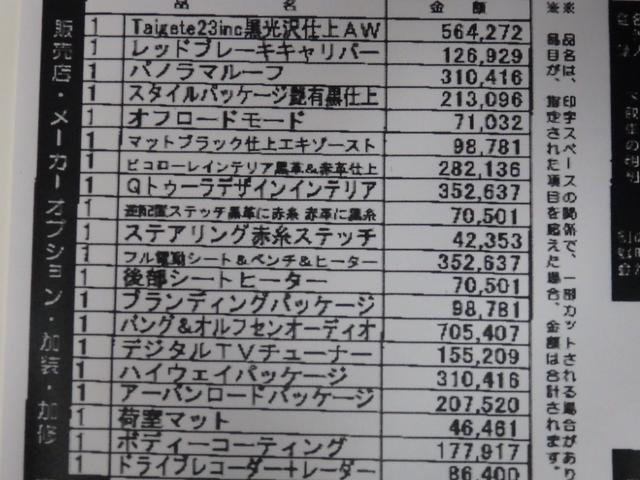 品 名 金 額
1 Taigete23inc黒光沢仕上AW 564,272
1 レッドブレーキキャリパー 126,929
1 パノラマルーフ 310,416
1 スタイルパッケージ艶有黒仕上 213,096
1 オフロードモード 71,032
1 マットブラック仕上エキゾースト 98,781
1 ピコローレインテリア黒革&赤革仕上 282,136
1 Qトゥーラデザインインテリア 352,637
1 逆配置ステッチ黒革に赤糸 赤革に黒糸 70,501
1 ステアリング赤糸ステッチ 42,353
1 フル電動シート&ベンチ&ヒーター 352,637
1 後部シートヒーター 70,501
1 ブランディングパッケージ 98,781
1 バング&オルフセンオーディオ 705,407
1 デジタルTVチューナー 155,209
1 ハイウェイパッケージ 310,416
1 アーバンロードパッケージ 207,520
1 荷室マット 46,461
1 ボディーコーティング 177,917
1 ドライブレコーダー+レーダー 86,400
販売店・メーカーオプション・加装・加修
※ 品名は、印字スペースの関係で、一部カットされる場合があり
※ 品目が、指定された項目を超えた場合、金額は合計されます。